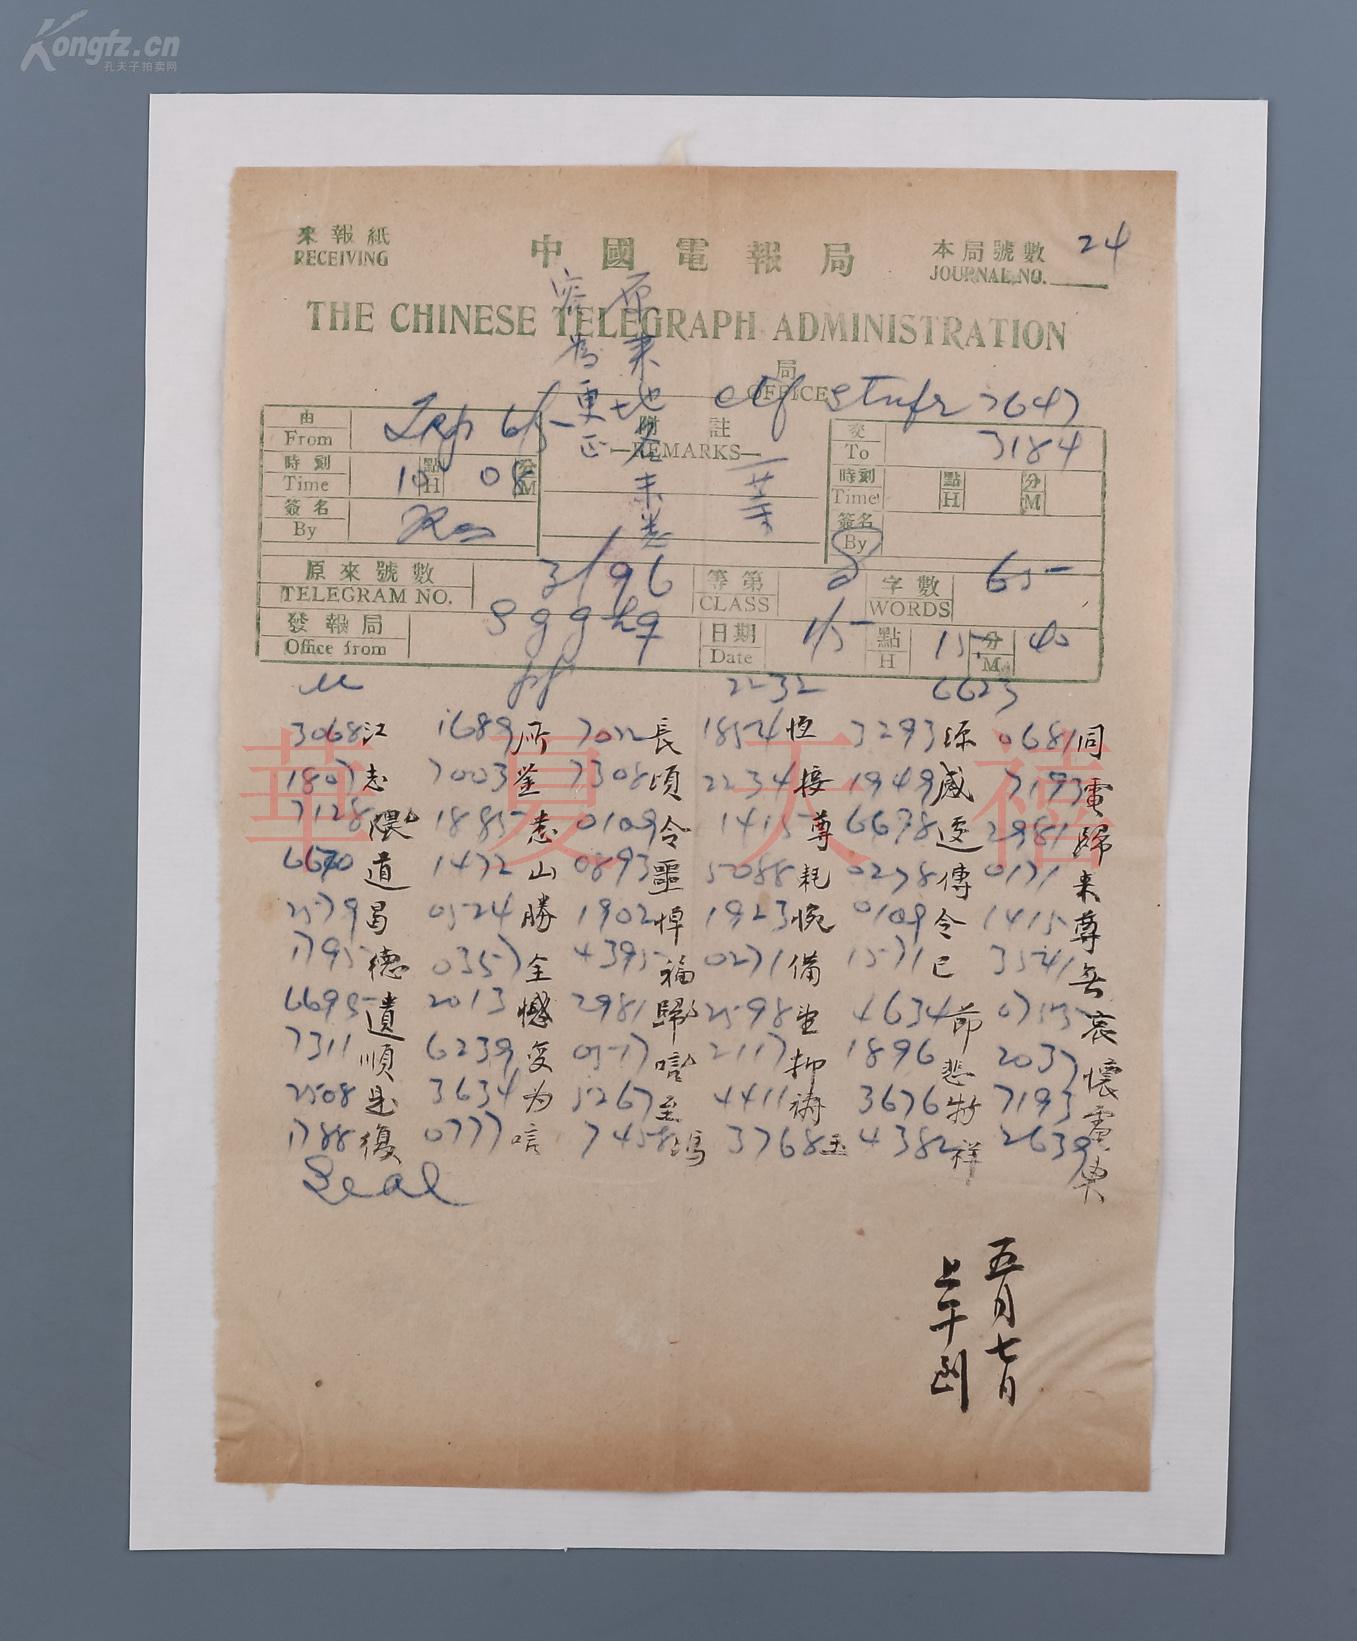 Kongfz.cn
孔夫子拍卖网
來報紙
RECEIVING
中國電報局
本局號數 24
JOURNAL NO.
THE CHINESE TELEGRAPH ADMINISTRATION
局
OFFICE
原来地
为更正
由
From
附註
REMARKS
交
To
3184
時刻
Time
點
H
分
M
時刻
Time
點
H
分
M
簽名
By
簽名
By
原來號數
TELEGRAM NO. 3/96
等第
CLASS
字數
WORDS 65
發報局
Office from
日期
Date 1/5
點
H 15
分
M 40
2232 6623
3068江 1689所 7022長 1854恆 3293 0681同
1807志 7003 7308頃 2234接 1949感 7193電
7128隈 1885 0109令 1415尊 6678 2981歸
6670道 1472山 0893噩 5088耗 0278傳 0171来
2579昌 0524勝 1902悼 1923惋 0109令 1415尊
1795德 0357全 4395福 0271備 1571已 3541
6695遺 2013憾 2981歸 2598 4634節 0755哀
7311順 6239 0517 2117抑 1896悲 2037懷
2508是 3634为 5267至 4411禱 3676特 7193電
1788復 0777唁 7458馮 3768玉 4382祥 2639
Seal
五月七日
上午到
華夏天禧